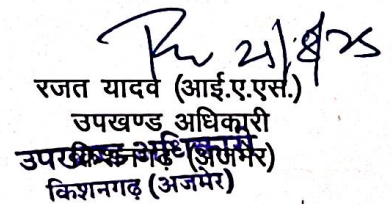 21/8/25
रजत यादव (आई.ए.एस.)
उपखण्ड अधिकारी
किशनगढ़ (अजमेर)
उपखण्ड अधिकारी
किशनगढ़ (अजमेर)